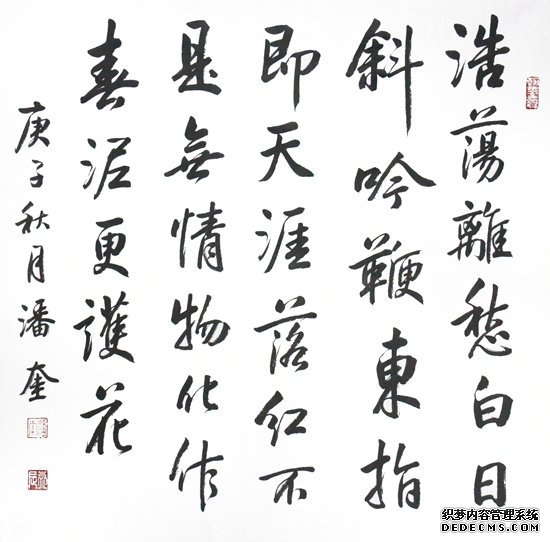 浩蕩離愁白日
斜吟鞭東指
即天涯落红不
是無情物化作
春泥更護花
庚子秋月潘奎
织梦内容管理系统
DEDECMS.COM